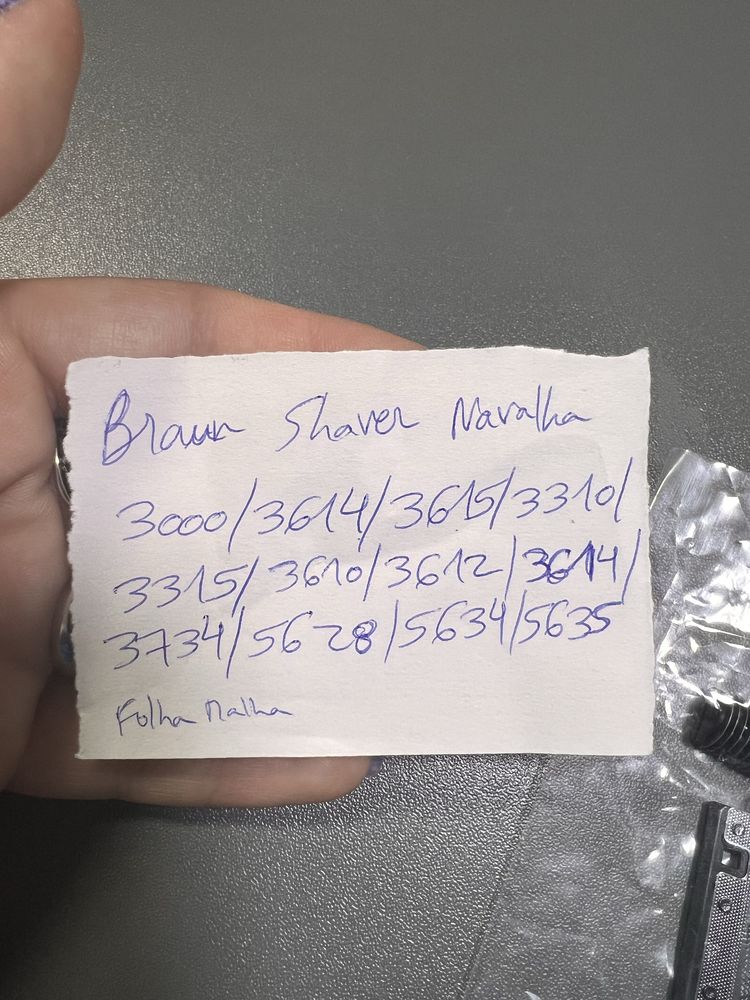 Braun Shaver Navalha
3000/3614/3615/3310/
3315/3610/3612/3614/
3734/5628/5634/5635
Folha Malha